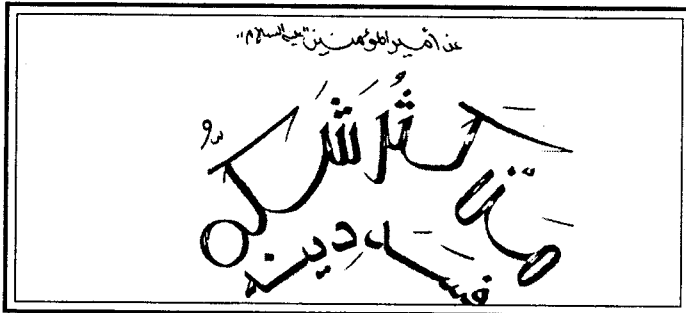 عن أمير المؤمنين "عليه السلام"
مَنْ كَثُرَ شَكُّهُ
فَسَدَ دِينُهُ